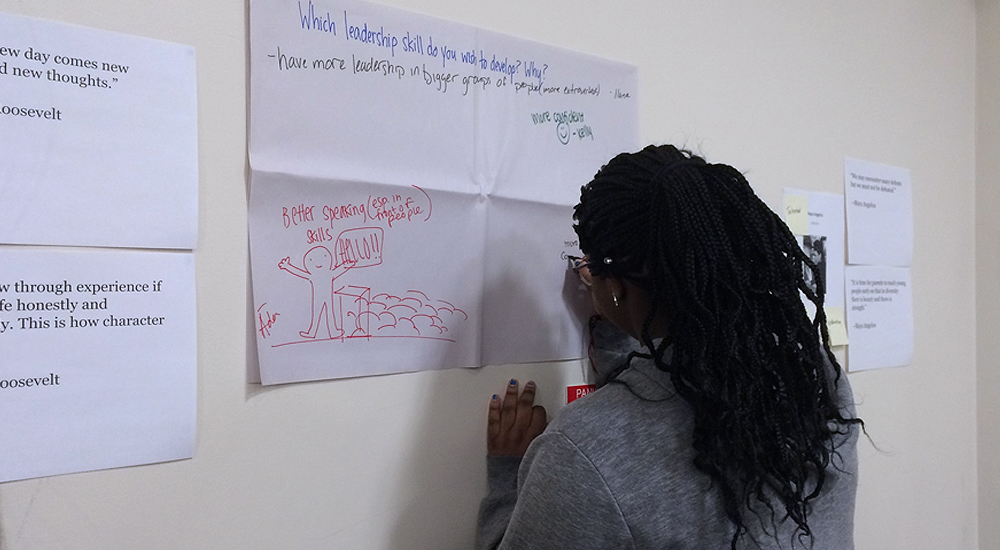 ew day comes new
d new thoughts.”
oosevelt
w through experience if
fe honestly and
y. This is how character
oosevelt
Which leadership skill do you wish to develop? Why?
-have more leadership in bigger groups of people (more extroverted)
more confident
- Kelly
Better speaking (esp. in
front of
people)
skills
HELLO!!
PAN
"We may encounter many defeats
but we must not be defeated."
- Maya Angelou
"It is time for parents to teach young
people early on that in diversity
there is beauty and there is
strength."
- Maya Angelou